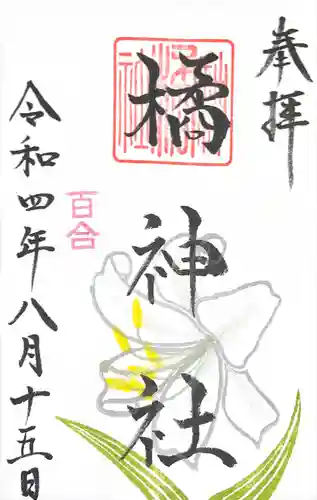 奉拝
橘神社
百合
令和四年八月十五日